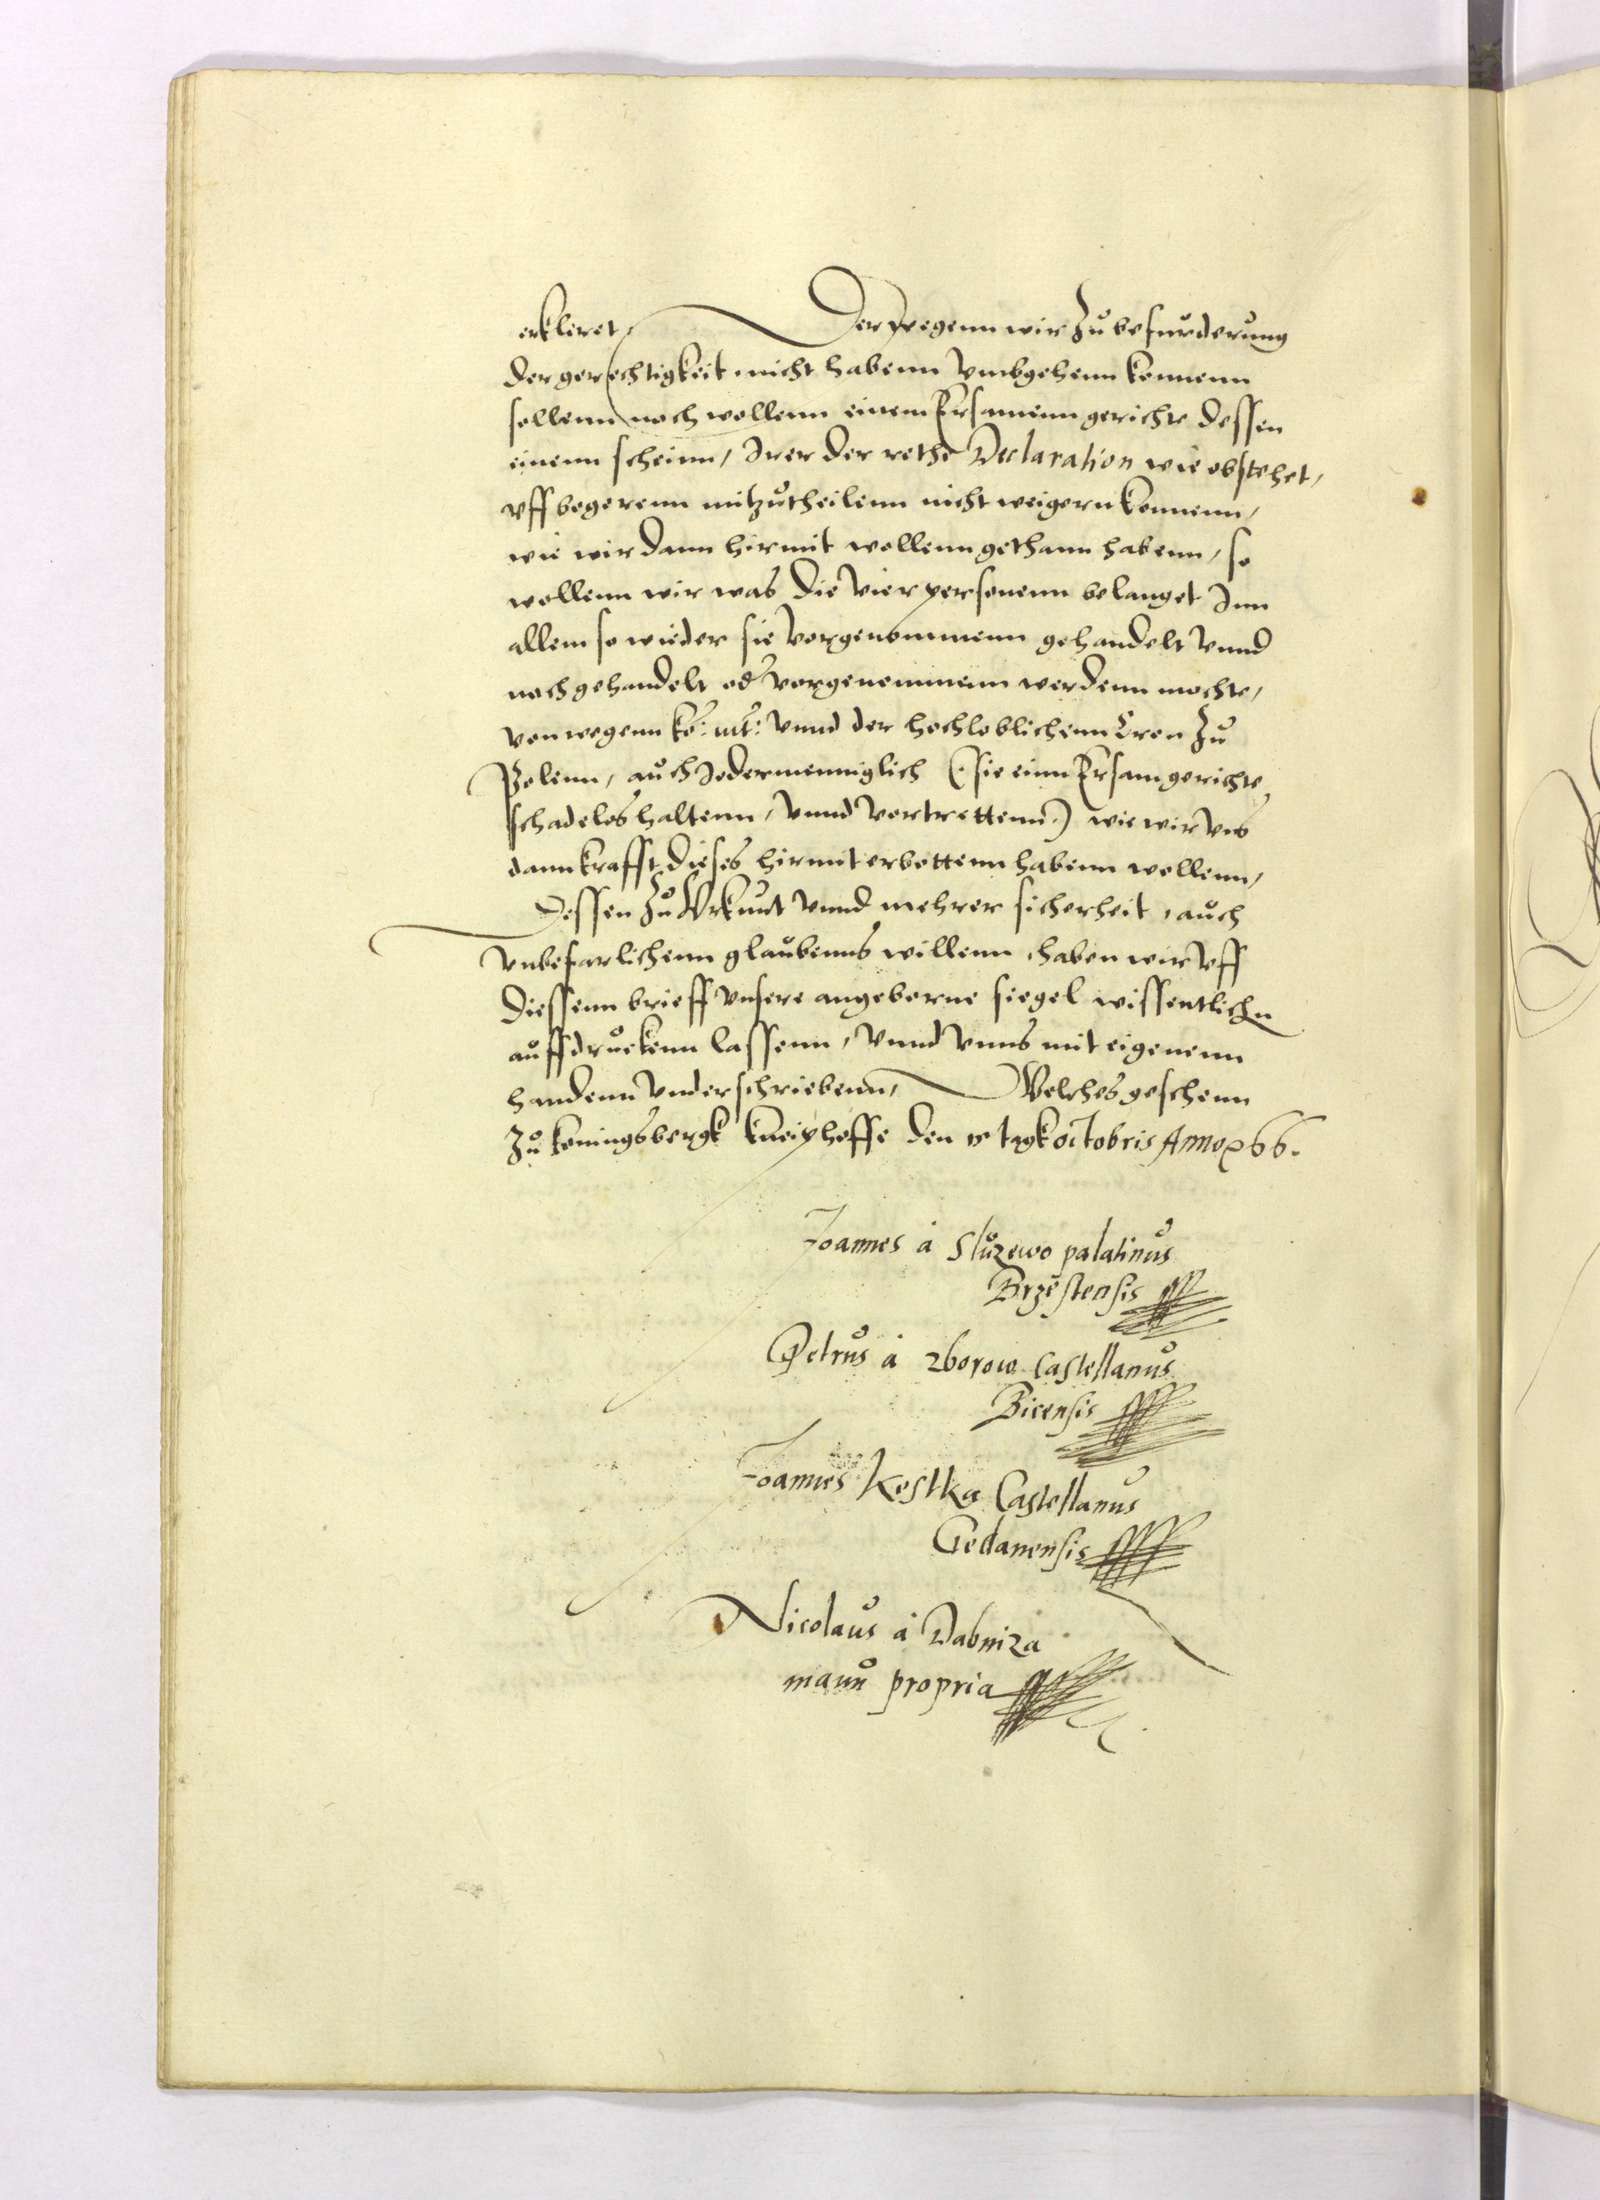 erkleret, Derwegenn wir zu befurderung
der gerechtigkeit nicht habenn vmbgehenn konnenn
sollenn noch wollenn einem Ersamenn gerichte dessen
einenn scheinn, Irer der rethe Declaration wie obstehet,
vff begerenn mitzutheilenn nicht weigern konnenn,
wie wir dann hirmit wollenn gethann habenn, so
wollenn wir was die vier personenn belanget Inn
allem so wieder sie vorgenommenn gehandelt vnnd
noch gehandelt od vorgenommenn werdenn mochte,
von wegenn ko: mt: vnnd der hochloblichenn Cron zu
Polenn, auch Jedermenniglich (: sie einn Ersam gerichte
schadelos haltenn, vnnd vortrettenn:) wie wir vns
dann krafft dieses hirmit erbottenn habenn wollenn,
Dessen zu Vrkunt vnnd mehrer sicherheit, auch
vnbefarlichenn glaubenns willenn, haben wir vff
diessenn brieff vnsere angeborne siegel wissentlichn
auffdruckenn lassenn, vnnd vnns mit eigenenn
handenn vnderschriebenn, Welches geschenn
zu koningsbergk kneiphoffe den tagk octobris Anno 66.
Joannes à Sluzewo palatinus
Brzestensis
Petrus à zborow Castellanus
Bicensis
Joannes Kostka Castellanus
Gedanensis
Nicolaus à Dabniza
manu propria